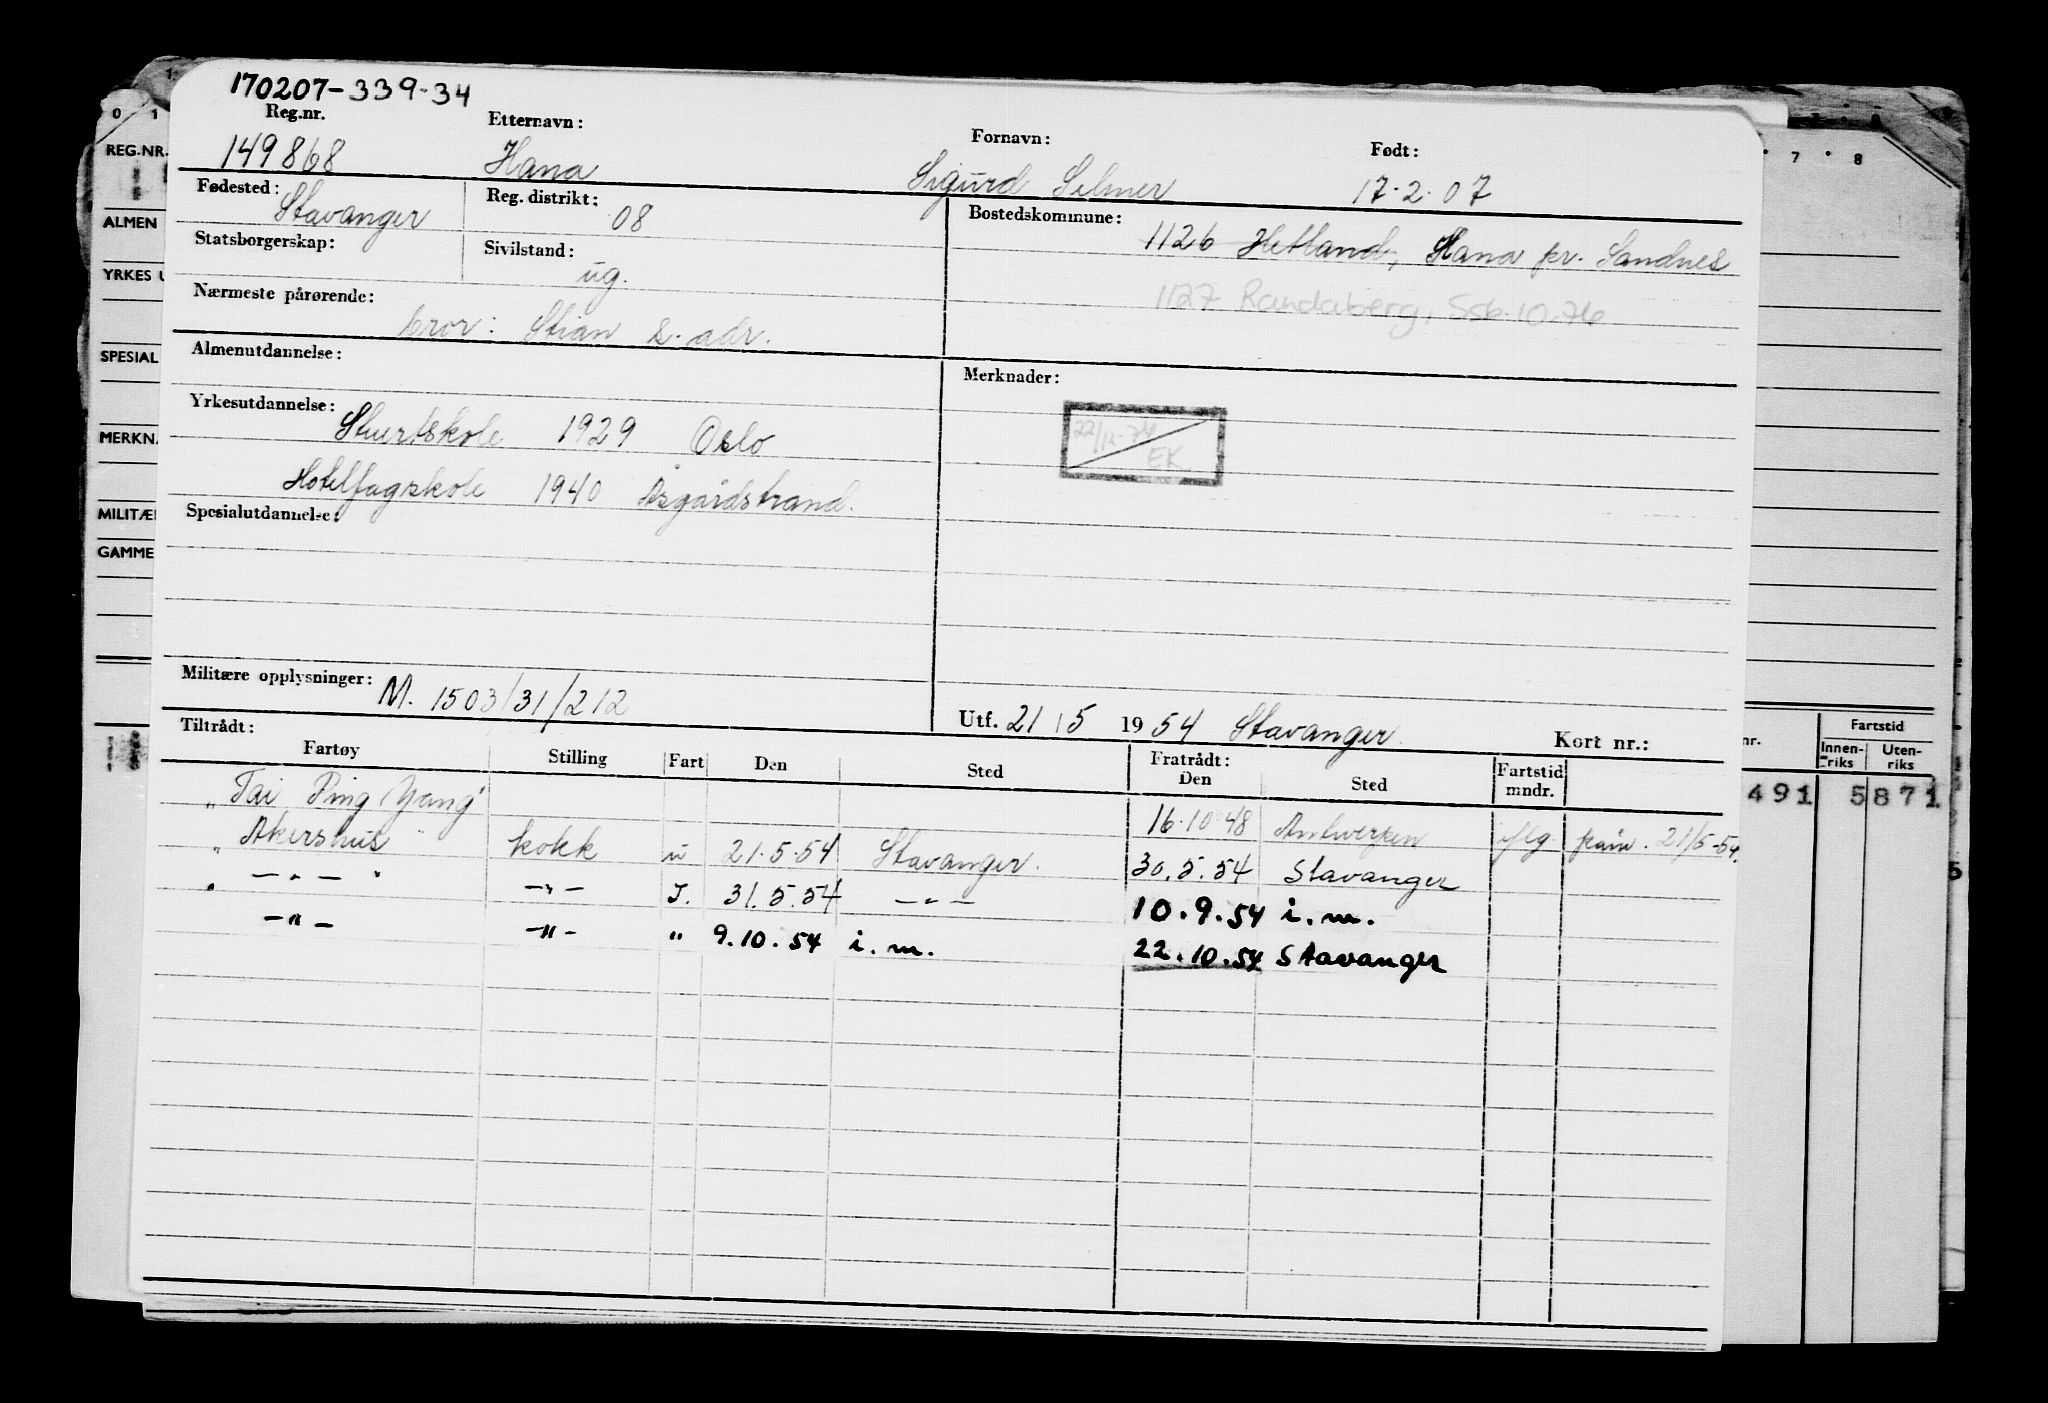 170207-339-34
Reg.nr. Etternavn: Fornavn: Født:
149868 Hana Sigurd Selmer 17.2.07
Fødested: Stavanger Reg. distrikt: 08 Bostedskommune: 1126 Hetland, Hana pr. Sandnes
Statsborgerskap: Sivilstand: ug.
1127 Randaberg, Ssb. 10.76
Nærmeste pårørende: bror: Stian s. adr.
Almenutdannelse: Merknader:
Yrkesutdannelse: Stuertskole 1929 Oslo
22/12-74
EK
Hotelfagskole 1940 Åsgårdstrand.
Spesialutdannelse:
Militære opplysninger: M. 1503/31/212
Utf. 21/5 1954 Stavanger. Kort nr.:
Tiltrådt: Fratrådt:
Fartøy Stilling Fart Den Sted Den Sted Fartstid mndr.
"Tai Ping Yang" 16.10.48 Antwerpen iflg. 21/5-54.
"Akershus" kokk u 21.5.54 Stavanger. 30.5.54 Stavanger
" — " — " — " — I. 31.5.54 — " — 10.9.54 i.m.
— " — — " — " 9.10.54 i.m. 22.10.54 Stavanger
0 1
REG.NR.
ALMEN
YRKES U
SPESIAL
MERKNA
MILITÆR
GAMME
7 8
nr. Fartstid
Innenriks Utenriks
491 5871
5